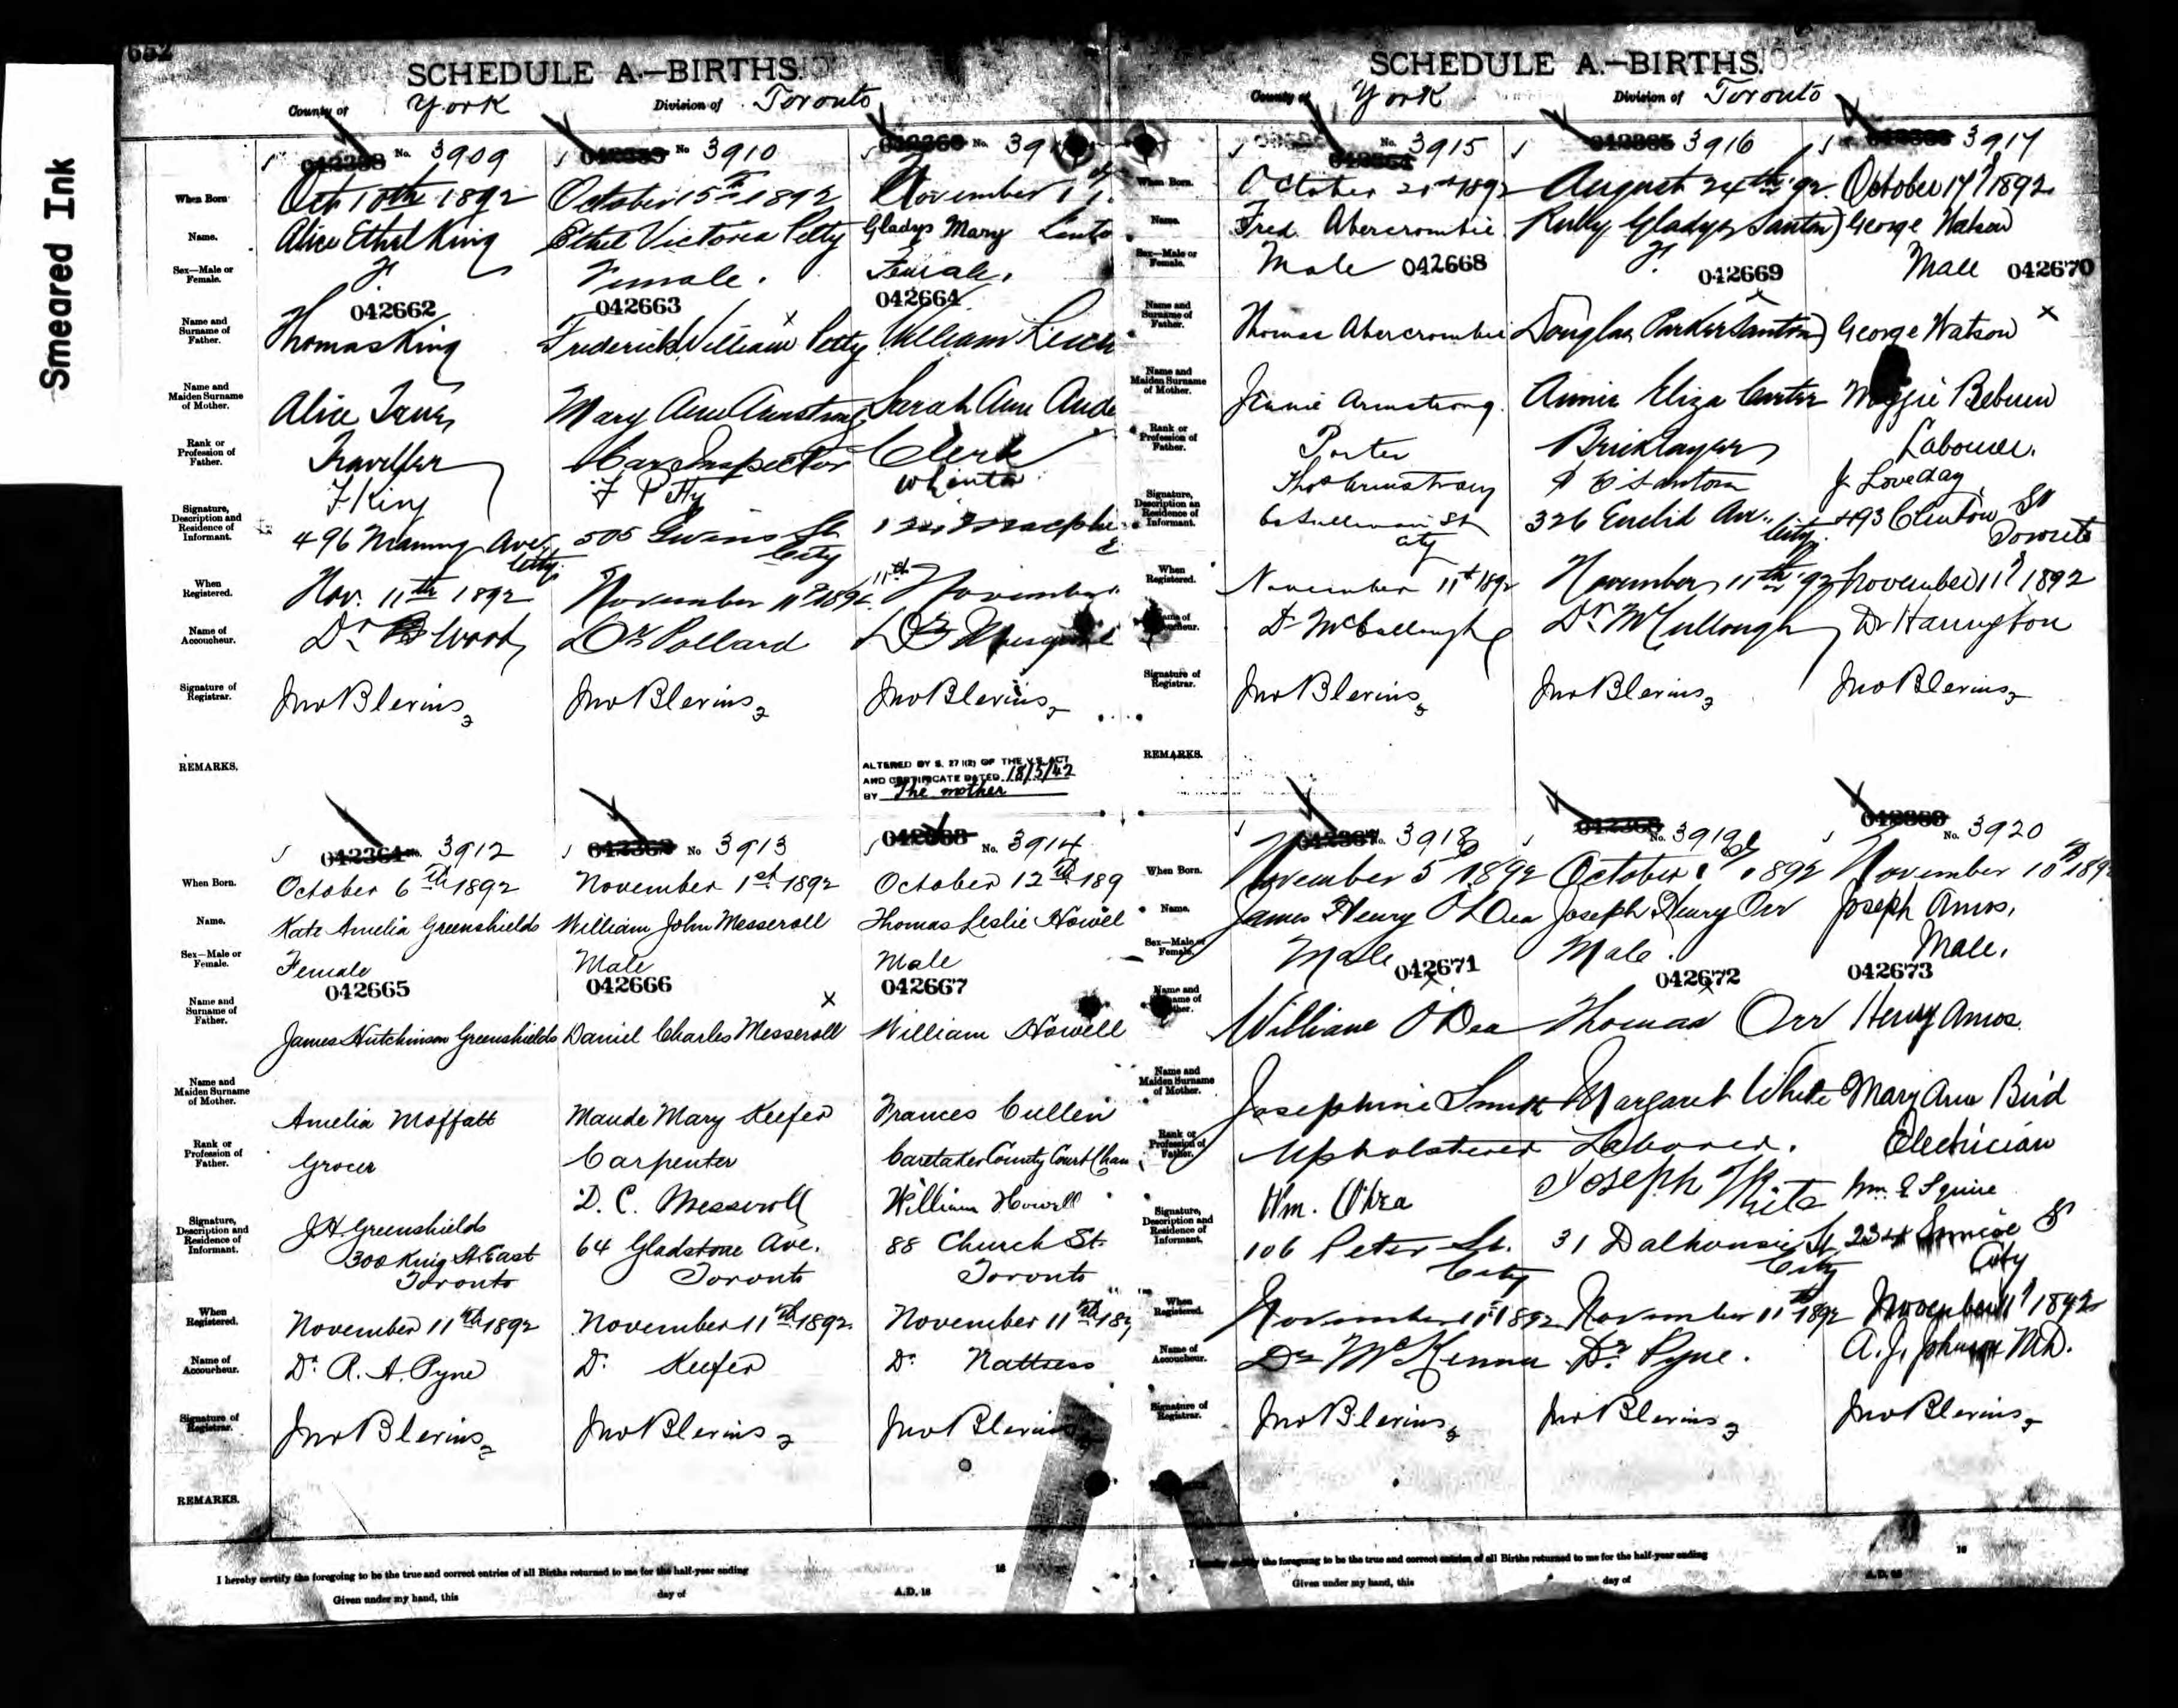 652
Smeared Ink
SCHEDULE A.—BIRTHS.
County of York Division of Toronto
No. 3909
When Born Oct 18th 1892
Name. Alice Ethel King
Sex—Male or Female. F.
042662
Name and Surname of Father. Thomas King
Name and Maiden Surname of Mother. Alice
Rank or Profession of Father. Traveller
Signature, Description and Residence of Informant. King
496 Manning Ave.
City
When Registered. Nov. 11th 1892
Name of Accoucheur. Dr Wood
Signature of Registrar. Jno Blevins
REMARKS.
No 3910
October 15th 1892
Ethel Victoria Petty
Female.
042663
Frederick William Petty
Mary Ann Armstrong
Car Inspector
F Petty
505 St
City
November 11th 1892
Dr Pollard
Jno Blevins
No. 39
November
Gladys Mary
Female.
042664
William
Sarah Ann
Clerk
11th November
Dr
Jno Blevins
ALTERED BY S. 27 (2) OF THE V.S. ACT
AND CERTIFICATE DATED 18/5/42
BY The mother
3912
When Born. October 6th 1892
Name. Kate Amelia Greenshields
Sex—Male or Female. Female
042665
Name and Surname of Father. James Hutchinson Greenshields
Name and Maiden Surname of Mother. Amelia Moffatt
Rank or Profession of Father. Grocer
Signature, Description and Residence of Informant. J.H. Greenshields
300 King St. East
Toronto
When Registered. November 11th 1892
Name of Accoucheur. Dr. R. A. Pyne
Signature of Registrar. Jno Blevins
REMARKS.
No 3913
November 1st 1892
William John Messeroll
Male
042666
Daniel Charles Messeroll
Maude Mary Keefer
Carpenter
D. C. Messeroll
64 Gladstone Ave.
Toronto
November 11th 1892
Dr. Keefer
Jno Blevins
No. 3914
October 12th 189
Thomas Leslie Howell
Male
042667
William Howell
Frances Cullen
Caretaker County Court Cham
William Howell
88 Church St.
Toronto
November 11th 189
Dr. Nattress
Jno Blevins
I hereby certify the foregoing to be the true and correct entries of all Births returned to me for the half-year ending 18
Given under my hand, this day of A.D. 18
SCHEDULE A.—BIRTHS.
County of York Division of Toronto
No. 3915
When Born. October 21st 1892
Name. Fred Abercrombie
Sex—Male or Female. Male
042668
Name and Surname of Father. Thomas Abercrombie
Name and Maiden Surname of Mother. Jennie Armstrong
Rank or Profession of Father. Porter
Signature, Description an Residence of Informant. Thos Armstrong
Sullivan St
City
When Registered. November 11th 1892
Dr McCullough
Signature of Registrar. Jno Blevins
REMARKS.
3916
August 24th 92.
Ruby Gladys Santon
F.
042669
Douglas Parker Santon
Annie Eliza Carter
Bricklayer
Santon
326 Euclid Ave.
City
November 11th 92
Dr. McCullough
Jno Blevins
3917
October 17th 1892
George Watson
Male
042670
George Watson
Labourer.
J. Loveday
493 Clinton St
Toronto
November 11th 1892
Dr Harrington
Jno Blevins
3918
When Born. November 5th 1892
Name. James Henry O'Dea
Sex—Male or Female. Male
042671
William O'Dea
Name and Maiden Surname of Mother. Josephine Smith
Rank or Profession of Father. Upholsterer
Signature, Description and Residence of Informant. Wm. O'Dea
106 Peter St.
City
When Registered. November 11th 1892
Name of Accoucheur. Dr McKenna
Signature of Registrar. Jno Blevins
No. 3919
October 1892
Joseph Henry Orr
Male.
042672
Thomas Orr
Margaret White
Laborer.
Joseph White
31 Dalhousie St
City
November 11th 1892
Dr. Pyne.
Jno Blevins
No. 3920
November 10th 189
Joseph Amos.
Male.
042673
Henry Amos.
Mary Ann Bird
Electrician
Wm. E Squire
234 Simcoe St
City
November 11th 1892
A. J. Johnson M.D.
Jno Blevins
I hereby certify the foregoing to be the true and correct entries of all Births returned to me for the half-year ending 18
Given under my hand, this day of A.D. 18